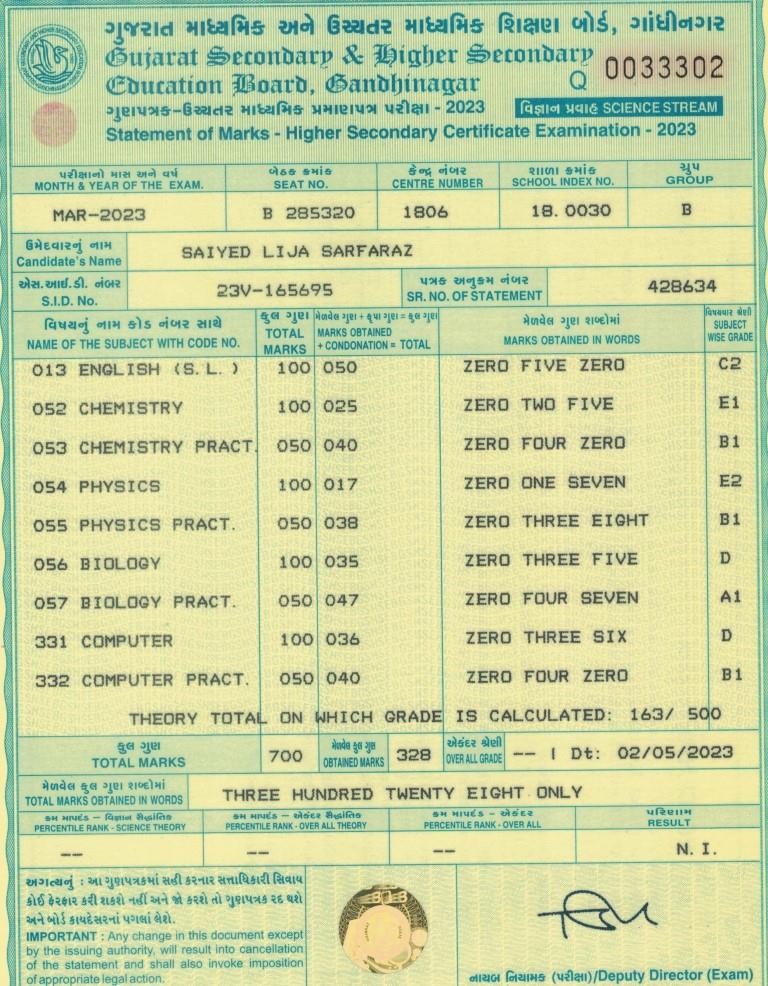 ગુજરાત માધ્યમિક અને ઉચ્ચતર માધ્યમિક શિક્ષણ બોર્ડ, ગાંધીનગર
Gujarat Secondary & Higher Secondary
Education Board, Gandhinagar
Q 0033302
ગુણપત્રક-ઉચ્ચતર માધ્યમિક પ્રમાણપત્ર પરીક્ષા - 2023
વિજ્ઞાન પ્રવાહ SCIENCE STREAM
Statement of Marks - Higher Secondary Certificate Examination - 2023
પરીક્ષાનો માસ અને વર્ષ બેઠક ક્રમાંક કેન્દ્ર નંબર શાળા ક્રમાંક ગ્રુપ
MONTH & YEAR OF THE EXAM. SEAT NO. CENTRE NUMBER SCHOOL INDEX NO. GROUP
MAR-2023 B 285320 1806 18.0030 B
ઉમેદવારનું નામ
Candidate's Name
SAIYED LIJA SARFARAZ
એસ.આઈ.ડી. નંબર
S.I.D. No.
23V-165695
પત્રક અનુક્રમ નંબર
SR. NO. OF STATEMENT
428634
વિષયનું નામ કોડ નંબર સાથે
NAME OF THE SUBJECT WITH CODE NO.
કુલ ગુણ
TOTAL
MARKS
મેળવેલ ગુણ + કૃપા ગુણ = કુલ ગુણ
MARKS OBTAINED
+ CONDONATION = TOTAL
મેળવેલ ગુણ શબ્દોમાં
MARKS OBTAINED IN WORDS
વિષયવાર શ્રેણી
SUBJECT
WISE GRADE
013 ENGLISH (S.L.) 100 050 ZERO FIVE ZERO C2
052 CHEMISTRY 100 025 ZERO TWO FIVE E1
053 CHEMISTRY PRACT. 050 040 ZERO FOUR ZERO B1
054 PHYSICS 100 017 ZERO ONE SEVEN E2
055 PHYSICS PRACT. 050 038 ZERO THREE EIGHT B1
056 BIOLOGY 100 035 ZERO THREE FIVE D
057 BIOLOGY PRACT. 050 047 ZERO FOUR SEVEN A1
331 COMPUTER 100 036 ZERO THREE SIX D
332 COMPUTER PRACT. 050 040 ZERO FOUR ZERO B1
THEORY TOTAL ON WHICH GRADE IS CALCULATED: 163/ 500
કુલ ગુણ
TOTAL MARKS
700
મેળવેલ કુલ ગુણ
OBTAINED MARKS
328
એકંદર શ્રેણી
OVER ALL GRADE
-- | Dt: 02/05/2023
મેળવેલ કુલ ગુણ શબ્દોમાં
TOTAL MARKS OBTAINED IN WORDS
THREE HUNDRED TWENTY EIGHT ONLY
ક્રમ માપદંડ - વિજ્ઞાન સૈદ્ધાંતિક ક્રમ માપદંડ - એકંદર સૈદ્ધાંતિક ક્રમ માપદંડ - એકંદર પરિણામ
PERCENTILE RANK - SCIENCE THEORY PERCENTILE RANK - OVER ALL THEORY PERCENTILE RANK - OVER ALL RESULT
-- -- -- N. I.
અગત્યનું : આ ગુણપત્રકમાં સહી કરનાર સત્તાધિકારી સિવાય
કોઈ ફેરફાર કરી શકશે નહીં અને જો કરશે તો ગુણપત્રક રદ થશે
અને બોર્ડ કાયદેસરનાં પગલાં લેશે.
IMPORTANT : Any change in this document except
by the issuing authority, will result into cancellation
of the statement and shall also invoke imposition
of appropriate legal action.
નાયબ નિયામક (પરીક્ષા)/Deputy Director (Exam)